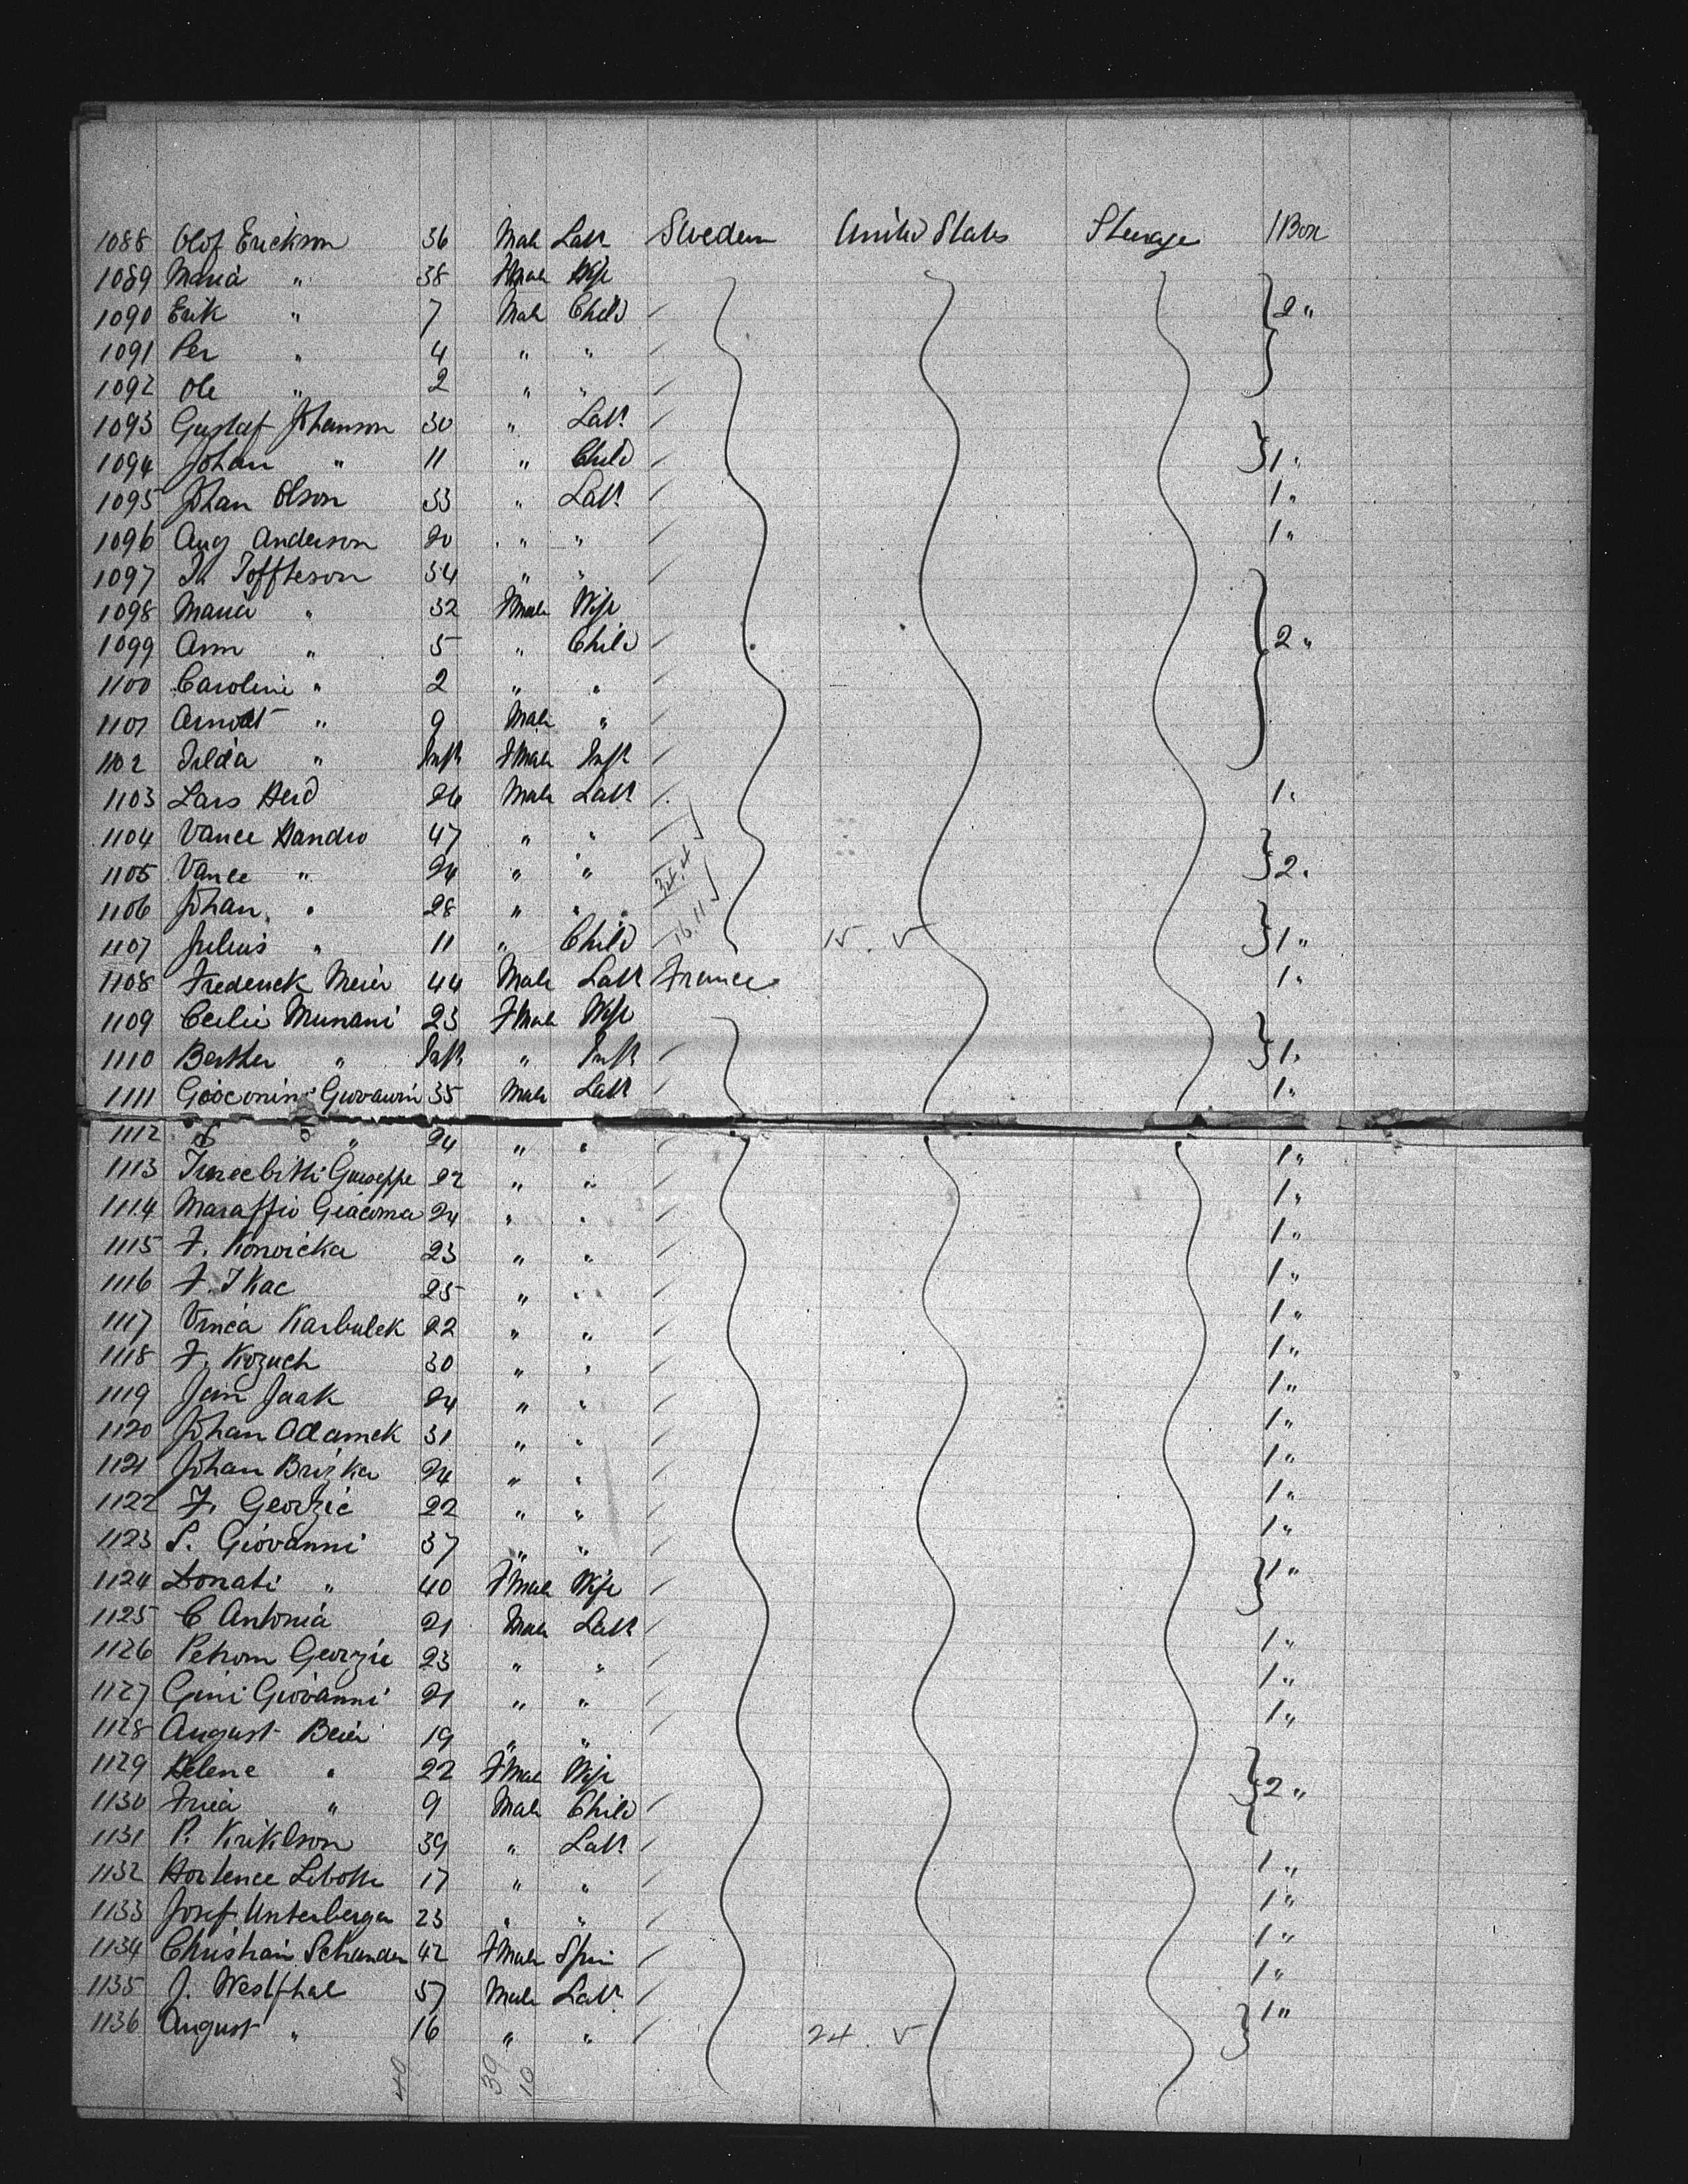 1088 Olof Erickson 36 Male Labr Sweden United States Steerage 1 Box
1089 Maria " 38 Fmale Wife
1090 Erik " 7 Male Child 2 "
1091 Per " 4 " "
1092 Ole " 2 " "
1093 Gustaf Johanson 30 " Labr
1094 Johan " 11 " Child 1 "
1095 Johan Olson 33 " Labr 1 "
1096 Aug Anderson 20 " " 1 "
1097 Toffteson 34 " "
1098 Maria " 32 Fmale Wife
1099 Ann " 5 " Child 2 "
1100 Caroline " 2 " "
1101 Arnodt " 9 Male "
1102 Tilda " Inft Fmale Inft
1103 Lars Herd 26 Male Labr 1 "
1104 Vance Handro 47 " "
1105 Vance " 24 " " 2 "
1106 Johan " 28 " "
1107 Julius " 11 " Child 15 . 5 1 "
1108 Frederick Meier 44 Male Labr France 1 "
1109 Cecilie Munani 23 Fmale Wife
1110 Berther " Inft " Inft 1 "
1111 Gioconini Giovanni 35 Male Labr 1 "
1112 " 24 " " 1 "
1113 Guiseppe 22 " " 1 "
1114 Maraffio Giacoma 24 " " 1 "
1115 F. Konvicka 23 " " 1 "
1116 F. Tkac 25 " " 1 "
1117 Vinca Karbulek 22 " " 1 "
1118 F. Kozuch 30 " " 1 "
1119 Jan Jaak 24 " " 1 "
1120 Johan Adamek 31 " " 1 "
1121 Johan Briska 24 " " 1 "
1122 F. Georgie 22 " " 1 "
1123 S. Giovanni 37 " "
1124 Donati " 40 Fmale Wife 1 "
1125 C Antonia 21 Male Labr 1 "
1126 Petrom Georgie 23 " " 1 "
1127 Gini Giovanni 21 " " 1 "
1128 August Beier 19 " "
1129 Helene " 22 Fmale Wife 2 "
1130 " 9 Male Child
1131 P. Kriklson 39 " Labr 1 "
1132 Hortence 17 " " 1 "
1133 Josef Unterberger 23 " " 1 "
1134 Christian Schunder 42 Fmale Spin 1 "
1135 J. Westfhal 57 Male Labr 1 "
1136 August " 16 " " 24 . 5
40 39 10